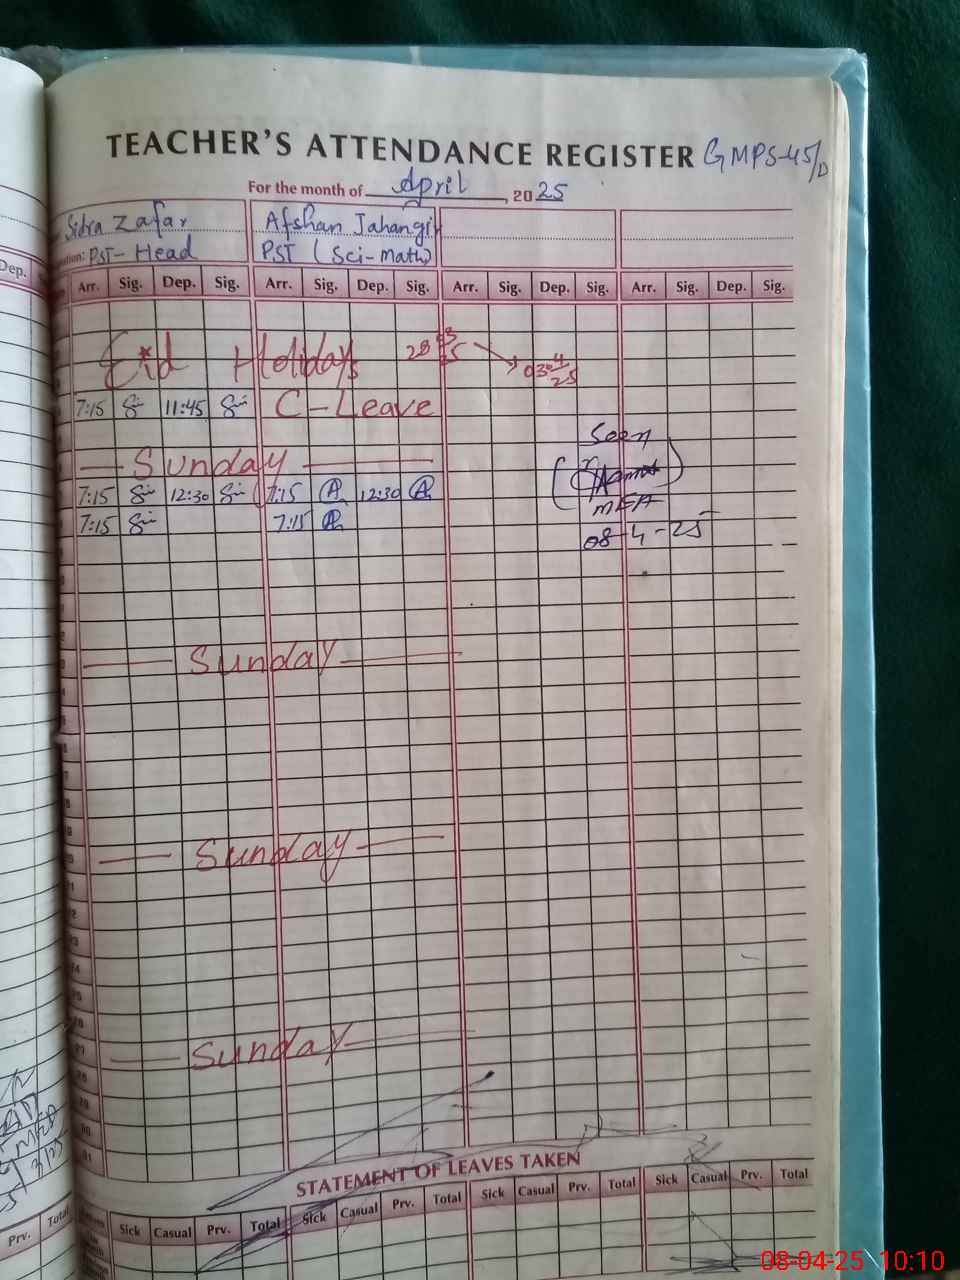 TEACHER'S ATTENDANCE REGISTER GMPS-45/D
For the month of April, 2025
Sidra Zafar Afshan Jahangir
PST-Head PST (Sci-Math)
Dep.
Arr. Sig. Dep. Sig. Arr. Sig. Dep. Sig. Arr. Sig. Dep. Sig. Arr. Sig. Dep. Sig.
Eid Holidays 28 03 25 03 04 25
7:15 11:45 C-Leave
Seen
Sunday
7:15 12:30 7:15 12:30
MEA
7:15 7:15
08-4-25
Sunday
Sunday
Sunday
STATEMENT OF LEAVES TAKEN
Prv. Total Sick Casual Prv. Total Sick Casual Prv. Total Sick Casual Prv. Total Sick Casual Prv. Total
08-04-25 10:10